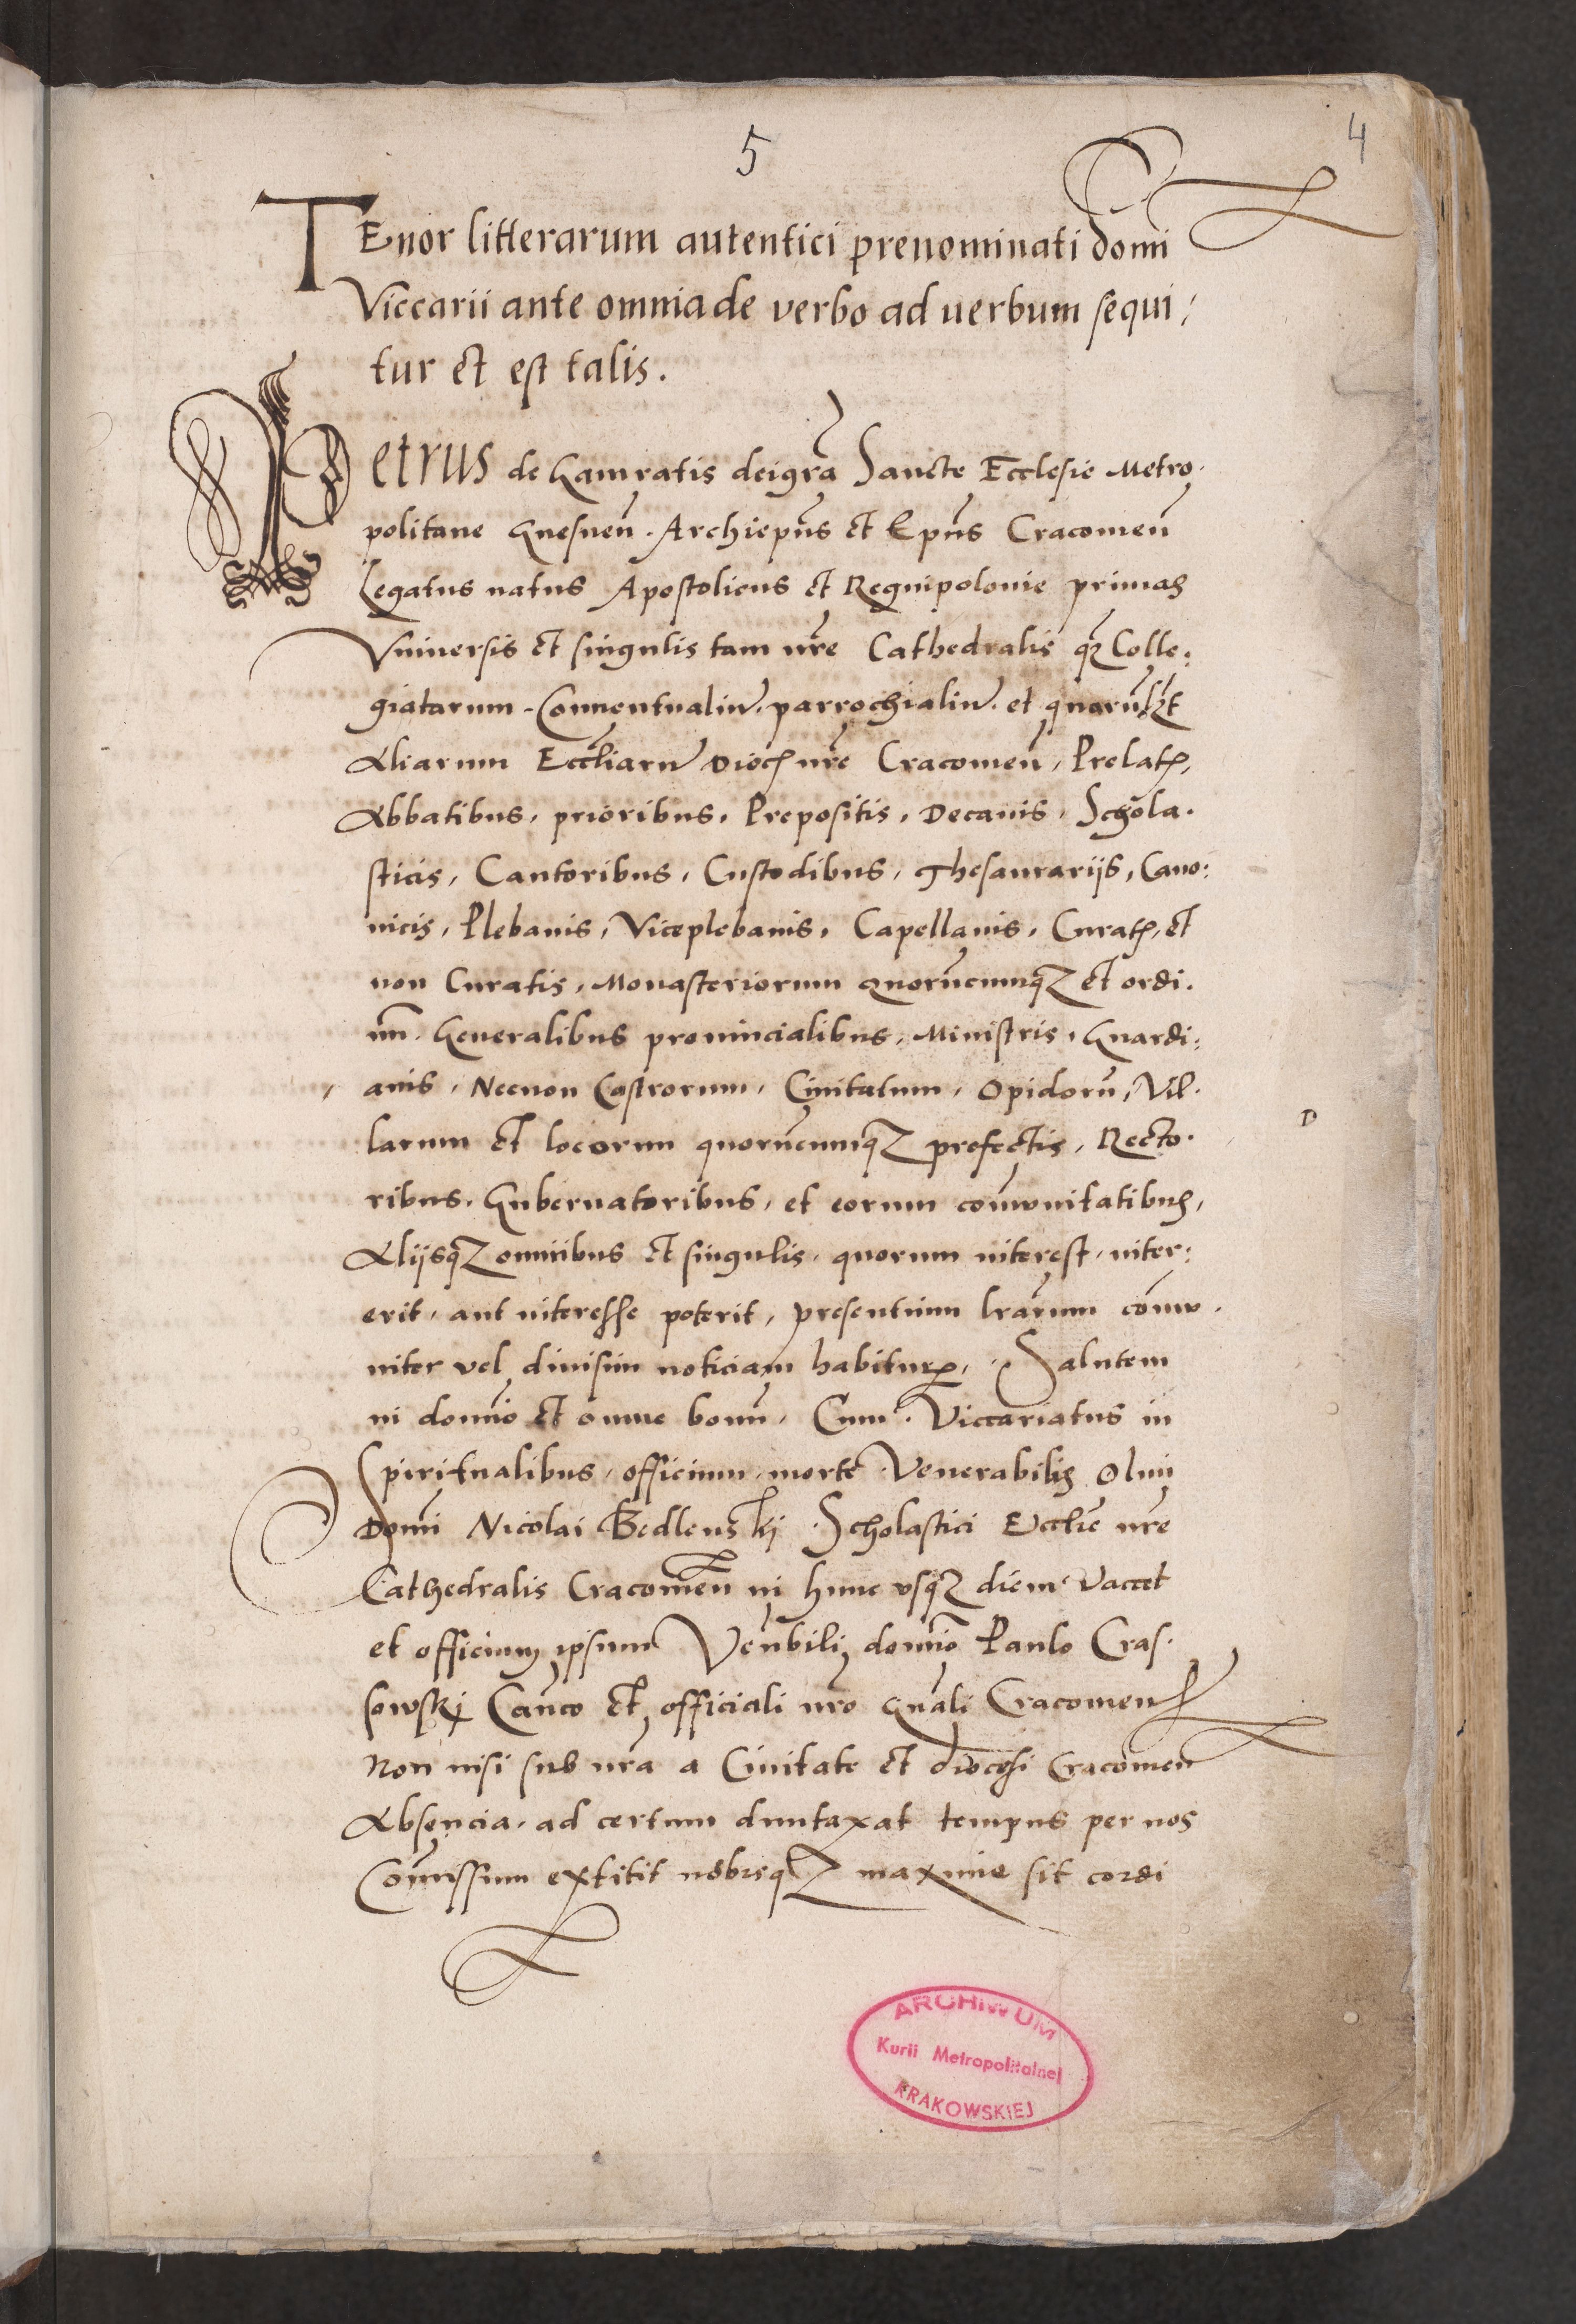 5
4
TEnor litterarum autentici prenominati domi
Viccarii ante omnia de verbo ad uerbum sequi,
tur et est talis.
Petrus de Gamratis dei gra Sancte Ecclesie Metro.
politane Gnesnen. Archiepus et Epus Cracouien
Legatus natus Apostolicus et Regni polonie primas
Vniuersis et singulis tam nre Cathedralis qz Colle:
giatarum. Conuentualiu. parrochialiu. et quaruлbzt
Aliarum Eccliaru Dioc nre Cracouien, Prelatis,
Abbatibus, prioribus, Prepositis, Decanis, Schola.
sticis, Cantoribus, Custodibus, Thesaurarijs, Cano:
nicis, Plebanis, Viceplebanis, Capellanis, Curatis, et
non Curatis, Monasteriorum quorucumqz et ordi.
nu. Generalibus prouincialibus, Ministris, Guardi:
anis, Necnon Castrorum, Ciuitatum, Opidoru, Vil.
larum et locorum quorucumqz prefectis, Recto.
D
ribus. Gubernatoribus, et eorum comunitatibus,
Alijsqz omnibus et singulis, quorum interest, inter:
erit, aut interesse poterit, presentium lrarum comu.
niter vel diuisim noticiam habituris, Salutem
in domino et omne bonu, Cum Viccariatus in
Spiritualibus, officium, morte Venerabilis Olim
Domi Nicolai Bedlenskj Scholastici Ecclie nre
Cathedralis Cracouien in hunc vsqz diem Vaccet
et officium ipsum Venbili domino Paulo Cras.
sowskj Canco et officiali nro Gnali Cracouien
Non nisi sub nra a Ciuitate et diocesi Cracouien
Absencia, ad certum duntaxat tempus per nos
Comissum extitit nobisqz maxime sit cordi
ARCHIWUM
Kurii Metropolitalnej
KRAKOWSKIEJ